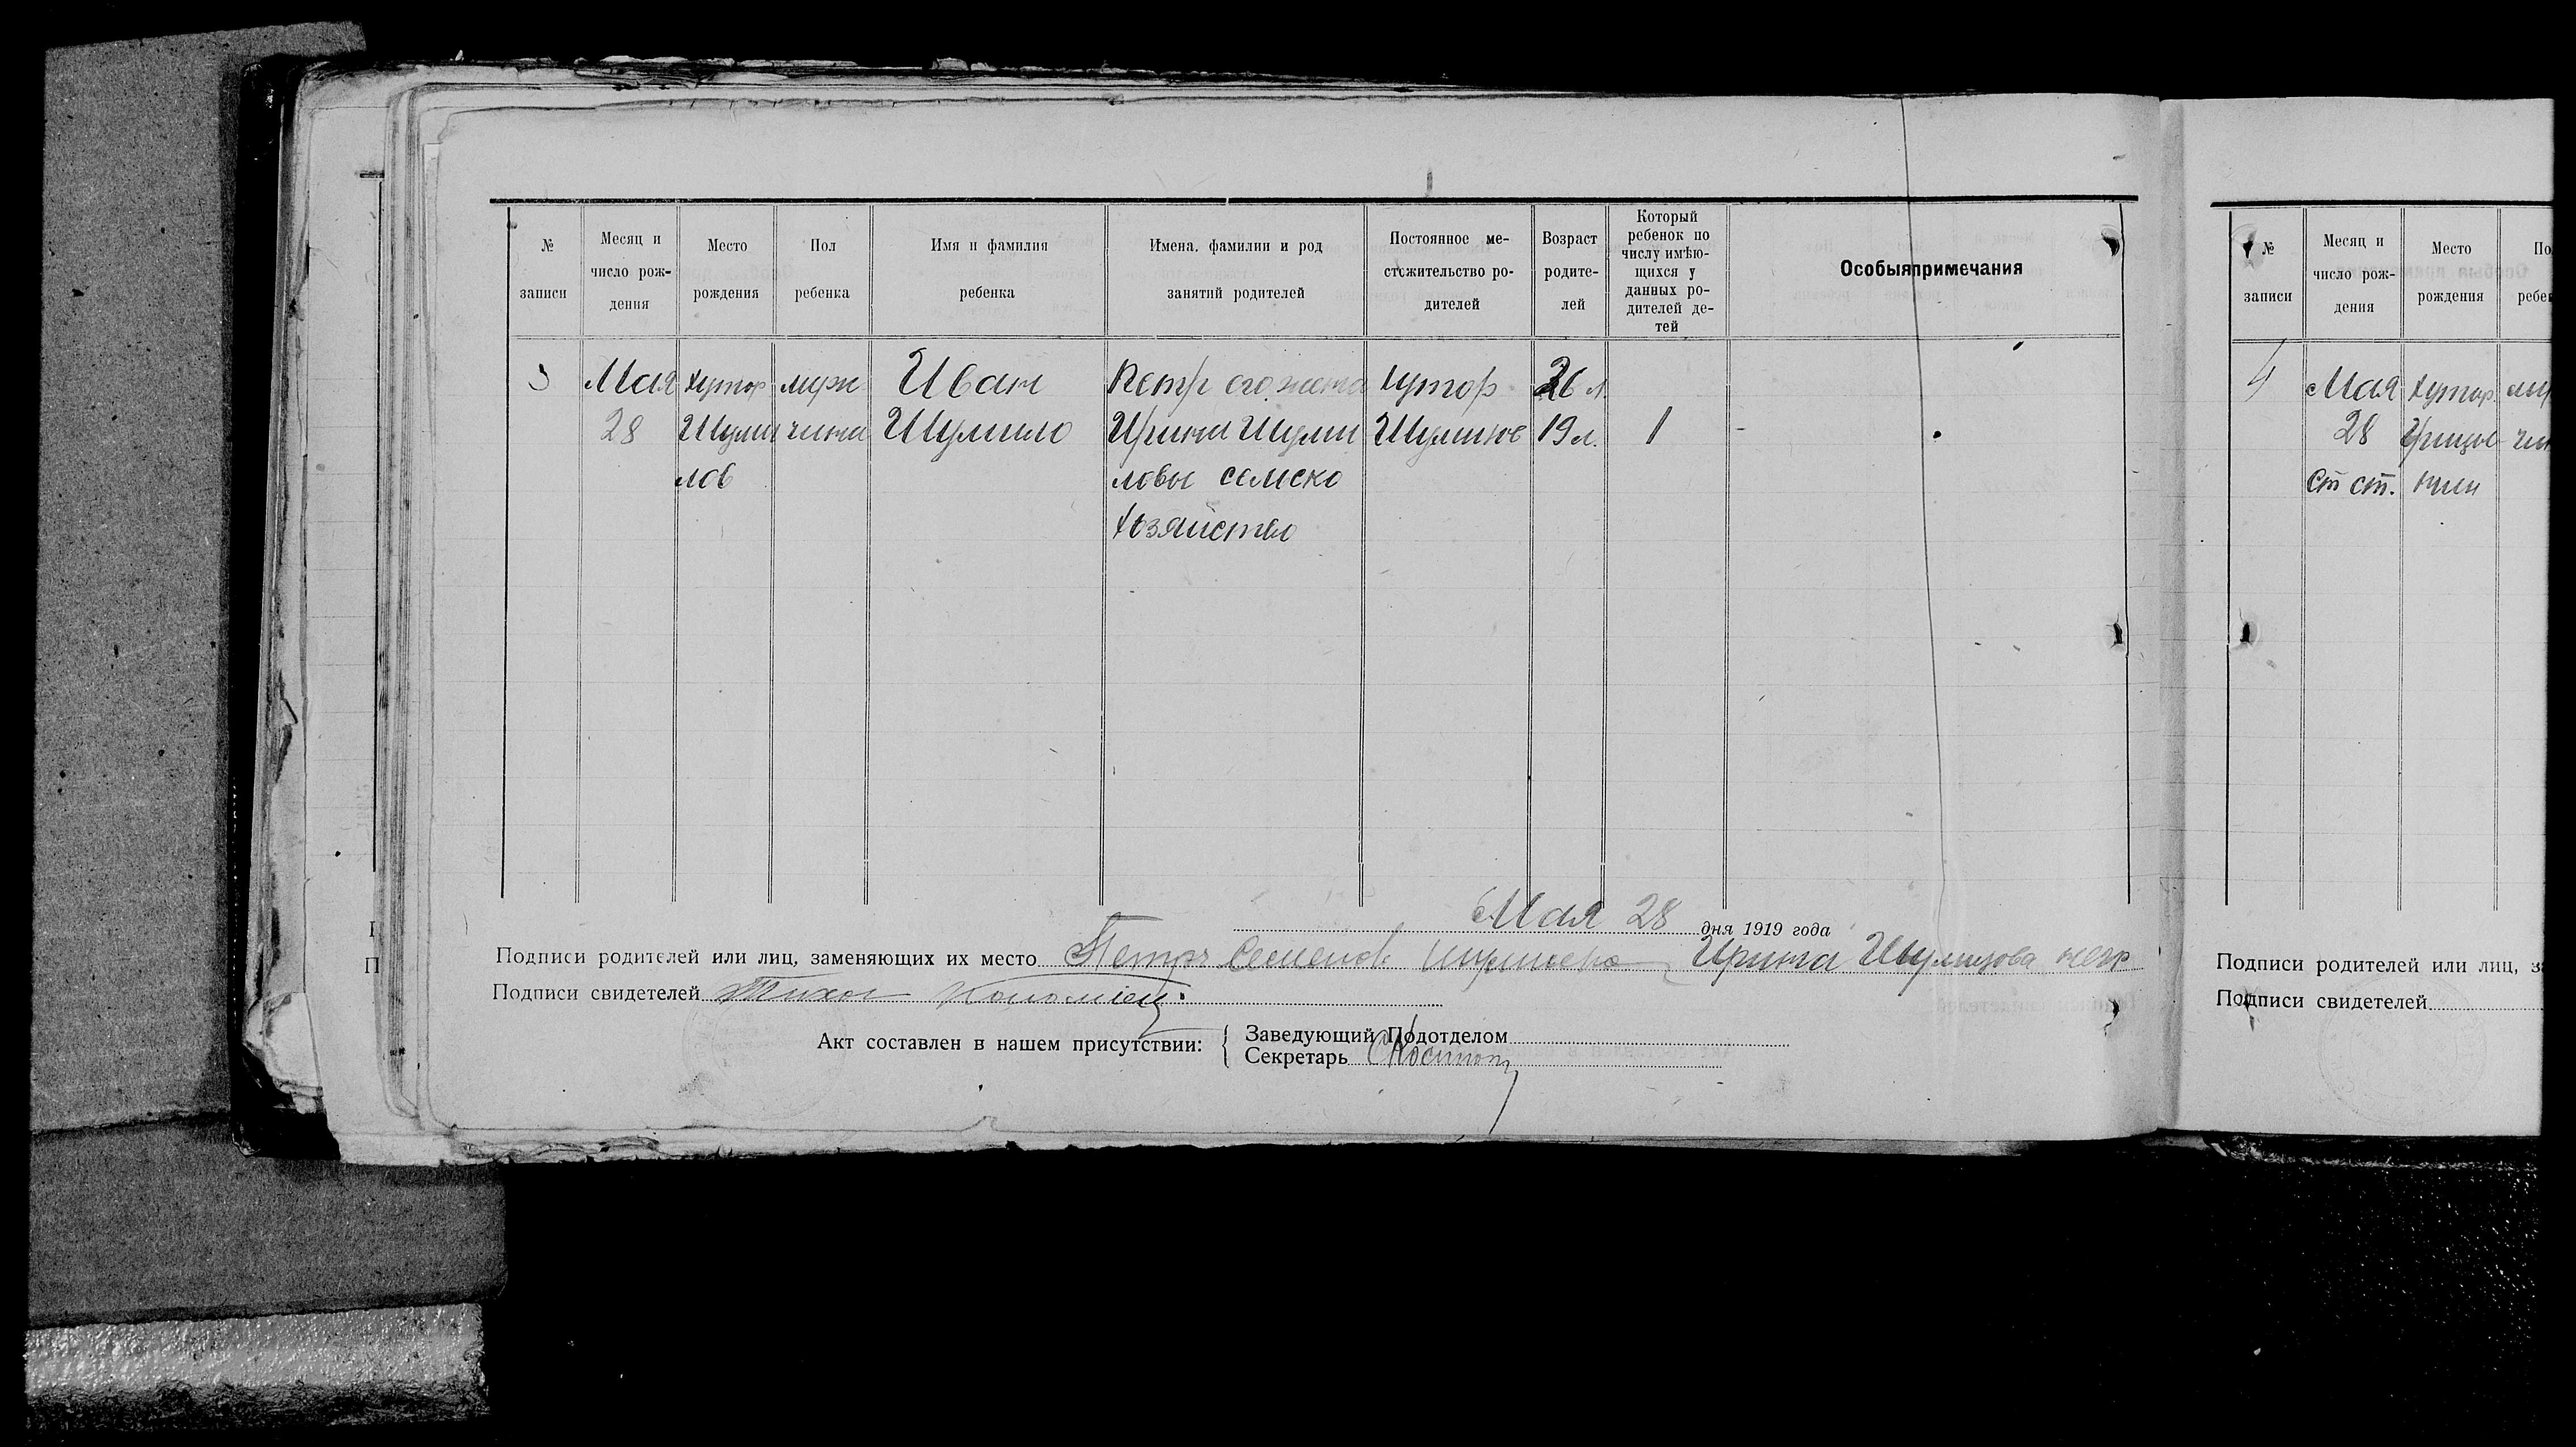 № записи
Месяц и число рож-дения
Место рождения
Пол ребенка
Имя и фамилия ребенка
Имена, фамилии и род занятий родителей
Постоянное ме-стожительство ро-дителей
Возраст родите-лей
Который ребенок по числу имѣю-щихся у данных ро-дителей де-тей
Особыяпримечания
3 Мая хутор муж Иван Петр его жена хутор 26 л.
28 Шуми чина Шумило Ирина Шуми 19 л. 1 -
лов ловы селско
хозяйство
Мая 28 дня 1919 года
Подписи родителей или лиц, заменяющих их место Петр Семенов Ирина
Подписи свидетелей Тихон Коломіец.
Акт составлен в нашем присутствии:
Заведующий Подотделом
Секретарь
№ записи
Месяц и число рож-дения
Место рождения
По
ребе
4 Мая хутор
28
Ст ст.
Подписи родителей или лиц, з
Подписи свидетелей